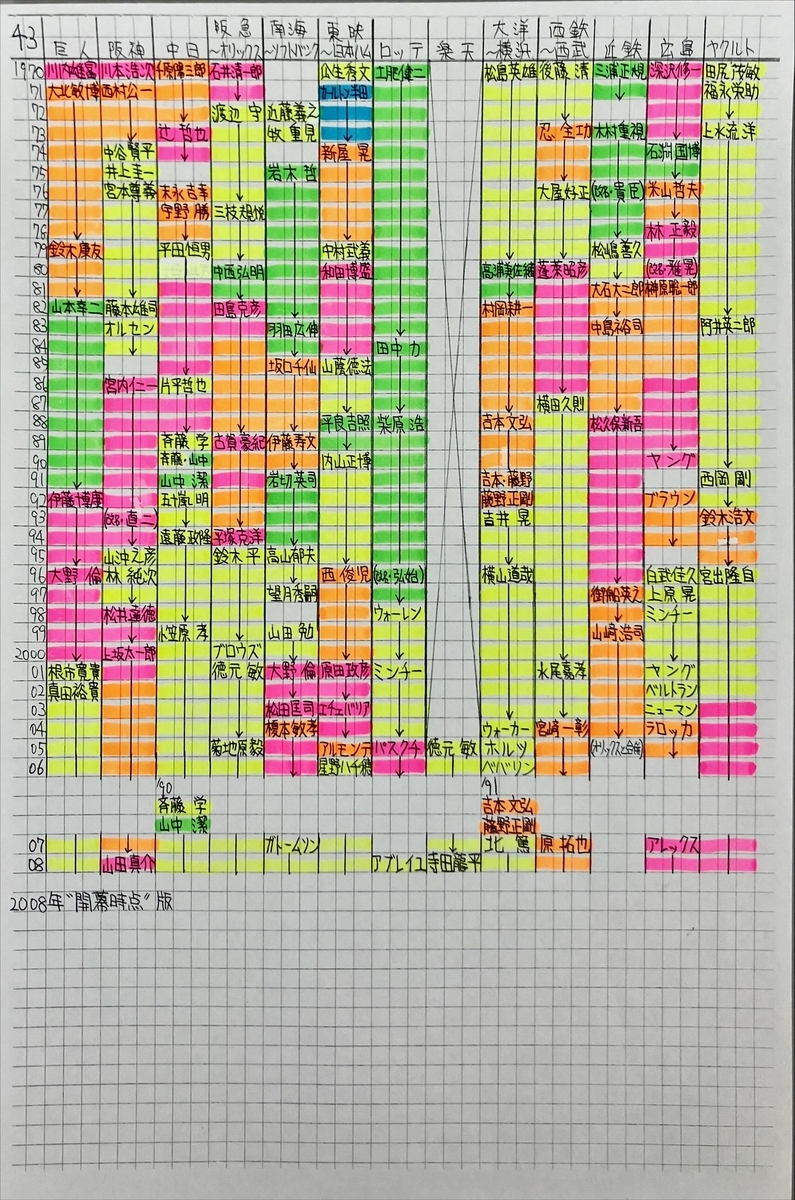 43 巨人 阪神 中日 阪急〜オリックス 南海〜ソフトバンク 東映〜日本ハム ロッテ 楽天 大洋〜横浜 西鉄〜西武 近鉄 広島 ヤクルト
1970 川内雄富 川本浩次 千原陽三郎 石井清一郎 瓜生秀文 土肥健二 松島英雄 後藤清 三浦正規 深沢修一 田尻茂敏
71 大北敏博 西村公一 カールトン半田 福永栄助
72 渡辺宇 近藤義之
73 辻哲也 牧重見 忍全功 木村重視 上水流洋
74 中谷賢平 新屋晃 石渕国博
75 井上圭一 岩木哲
76 宮本尊義 末永吉幸 大屋好正 (改名・貴臣) 米山哲夫
77 宇野勝 三枝規悦
78 林正毅
79 鈴木康友 平田恒男 中村武義 松嶋善久
80 中西弘明 和田博盛 高浦美佐緒 蓬莱昭彦 (改名・雅晃)
81 大石大二郎 榊原聡一郎
82 山本幸二 藤本雄司 田島克彦 村岡耕一
83 オルセン 羽田広伸 中島裕司 門井英二郎
84 田中力
85 坂口千仙 山蔭徳法
86 宮内仁一 片平哲也
87 横田久則
88 平良吉照 柴原浩 吉本文弘 松久保新吾
89 斉藤学 古賀豪紀 伊藤寿文
90 斉藤・山中 内山正博 ヤング
91 山中潔 岩切英司 吉本・藤野 西岡剛
92 伊藤博康 五十嵐明 藤野正剛 ブラウン
93 (改名・直二) 吉井晃 鈴木浩文
94 遠藤政隆 平塚克洋
95 山沖之彦 鈴木平 高山郁夫
96 大野倫 林純次 西俊児 (改名・弘始) 横山道哉 白武佳久 宮出隆自
97 望月秀嗣 御船英之 上原晃
98 松井達徳 ウォーレン ミンチー
99 小笠原孝 山田勉 山﨑浩司
2000 上坂太一郎 ブロウズ
01 根市寛貴 徳元敏 大野倫 原田政彦 ミンチー 水尾嘉孝 ヤング
02 真田裕貴 ベルトラン
03 松田匡司 エチェバリア ニューマン
04 榎本敏孝 ウォーカー 宮崎一彰 ラロッカ
05 菊地原毅 アルモンテ パスクチ 徳元敏 ホルツ (オリックスと合併)
06 星野八千穂 ベバリン
'90 '91
斉藤学 吉本文弘
山中潔 藤野正剛
07 ガトームソン 北篤 原拓也 アレックス
08 山田真介 アブレイユ 寺田龍平
2008年"開幕時点"版